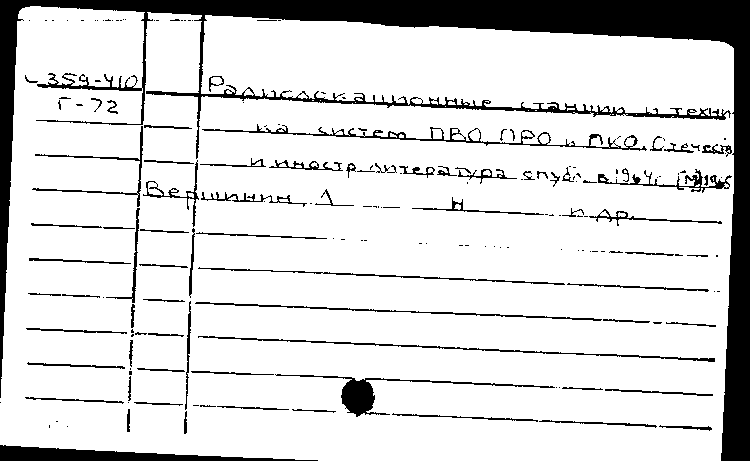 359-410 Радиолокационные станции и техни-
Г-72 ка систем ПВО, ПРО и ПКО. Отечеств.
и иностр. литература опубл. в 1964г. [М], 1965
Вершинин, Л Н и др.